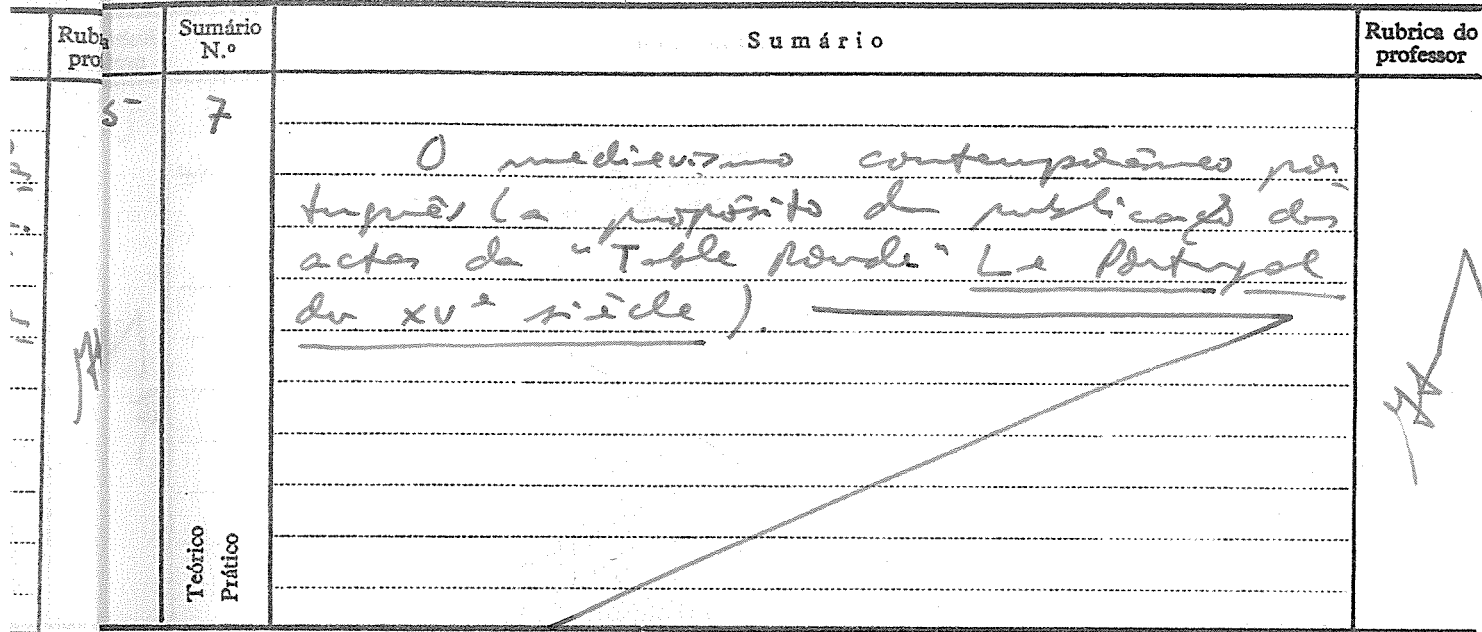 Rub
pro
Sumário
N.º
Sumário
Rubrica do
professor
5
7
O medievismo contemporâneo por-
tuguês (a propósito da publicação das
actas da "Table Ronde" Le Portugal
du XVe siècle).
Teórico
Prático